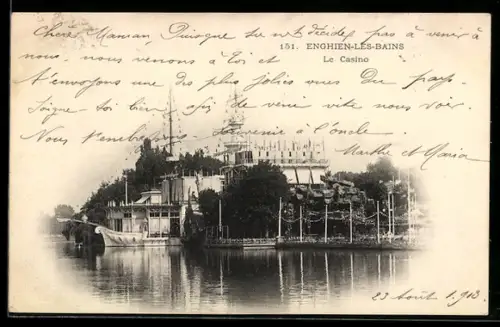 Chère Maman, Puisque tu ne te décides pas à venir à
151. ENGHIEN-LES-BAINS
Le Casino
nous, nous venons à toi et
t'envoyons une des plus jolies vues du pays.
Soigne toi bien afin de venir vite nous voir.
Nous t'embrassons souvenir à l'oncle.
Marthe et Maria
23 Août 1903